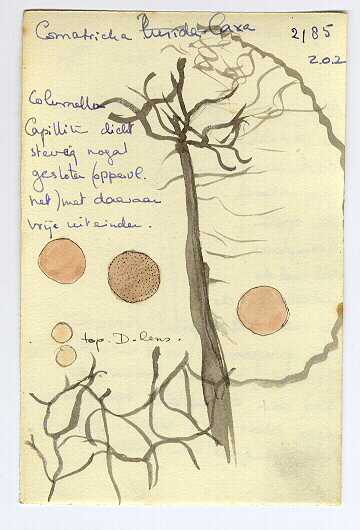 Comatricha laxa
2/85
202
Columella
Capillitium dicht
stevig nogal
gesloten (oppervl.
net) met daaraan
vrije uiteinden.
top. D-lens.